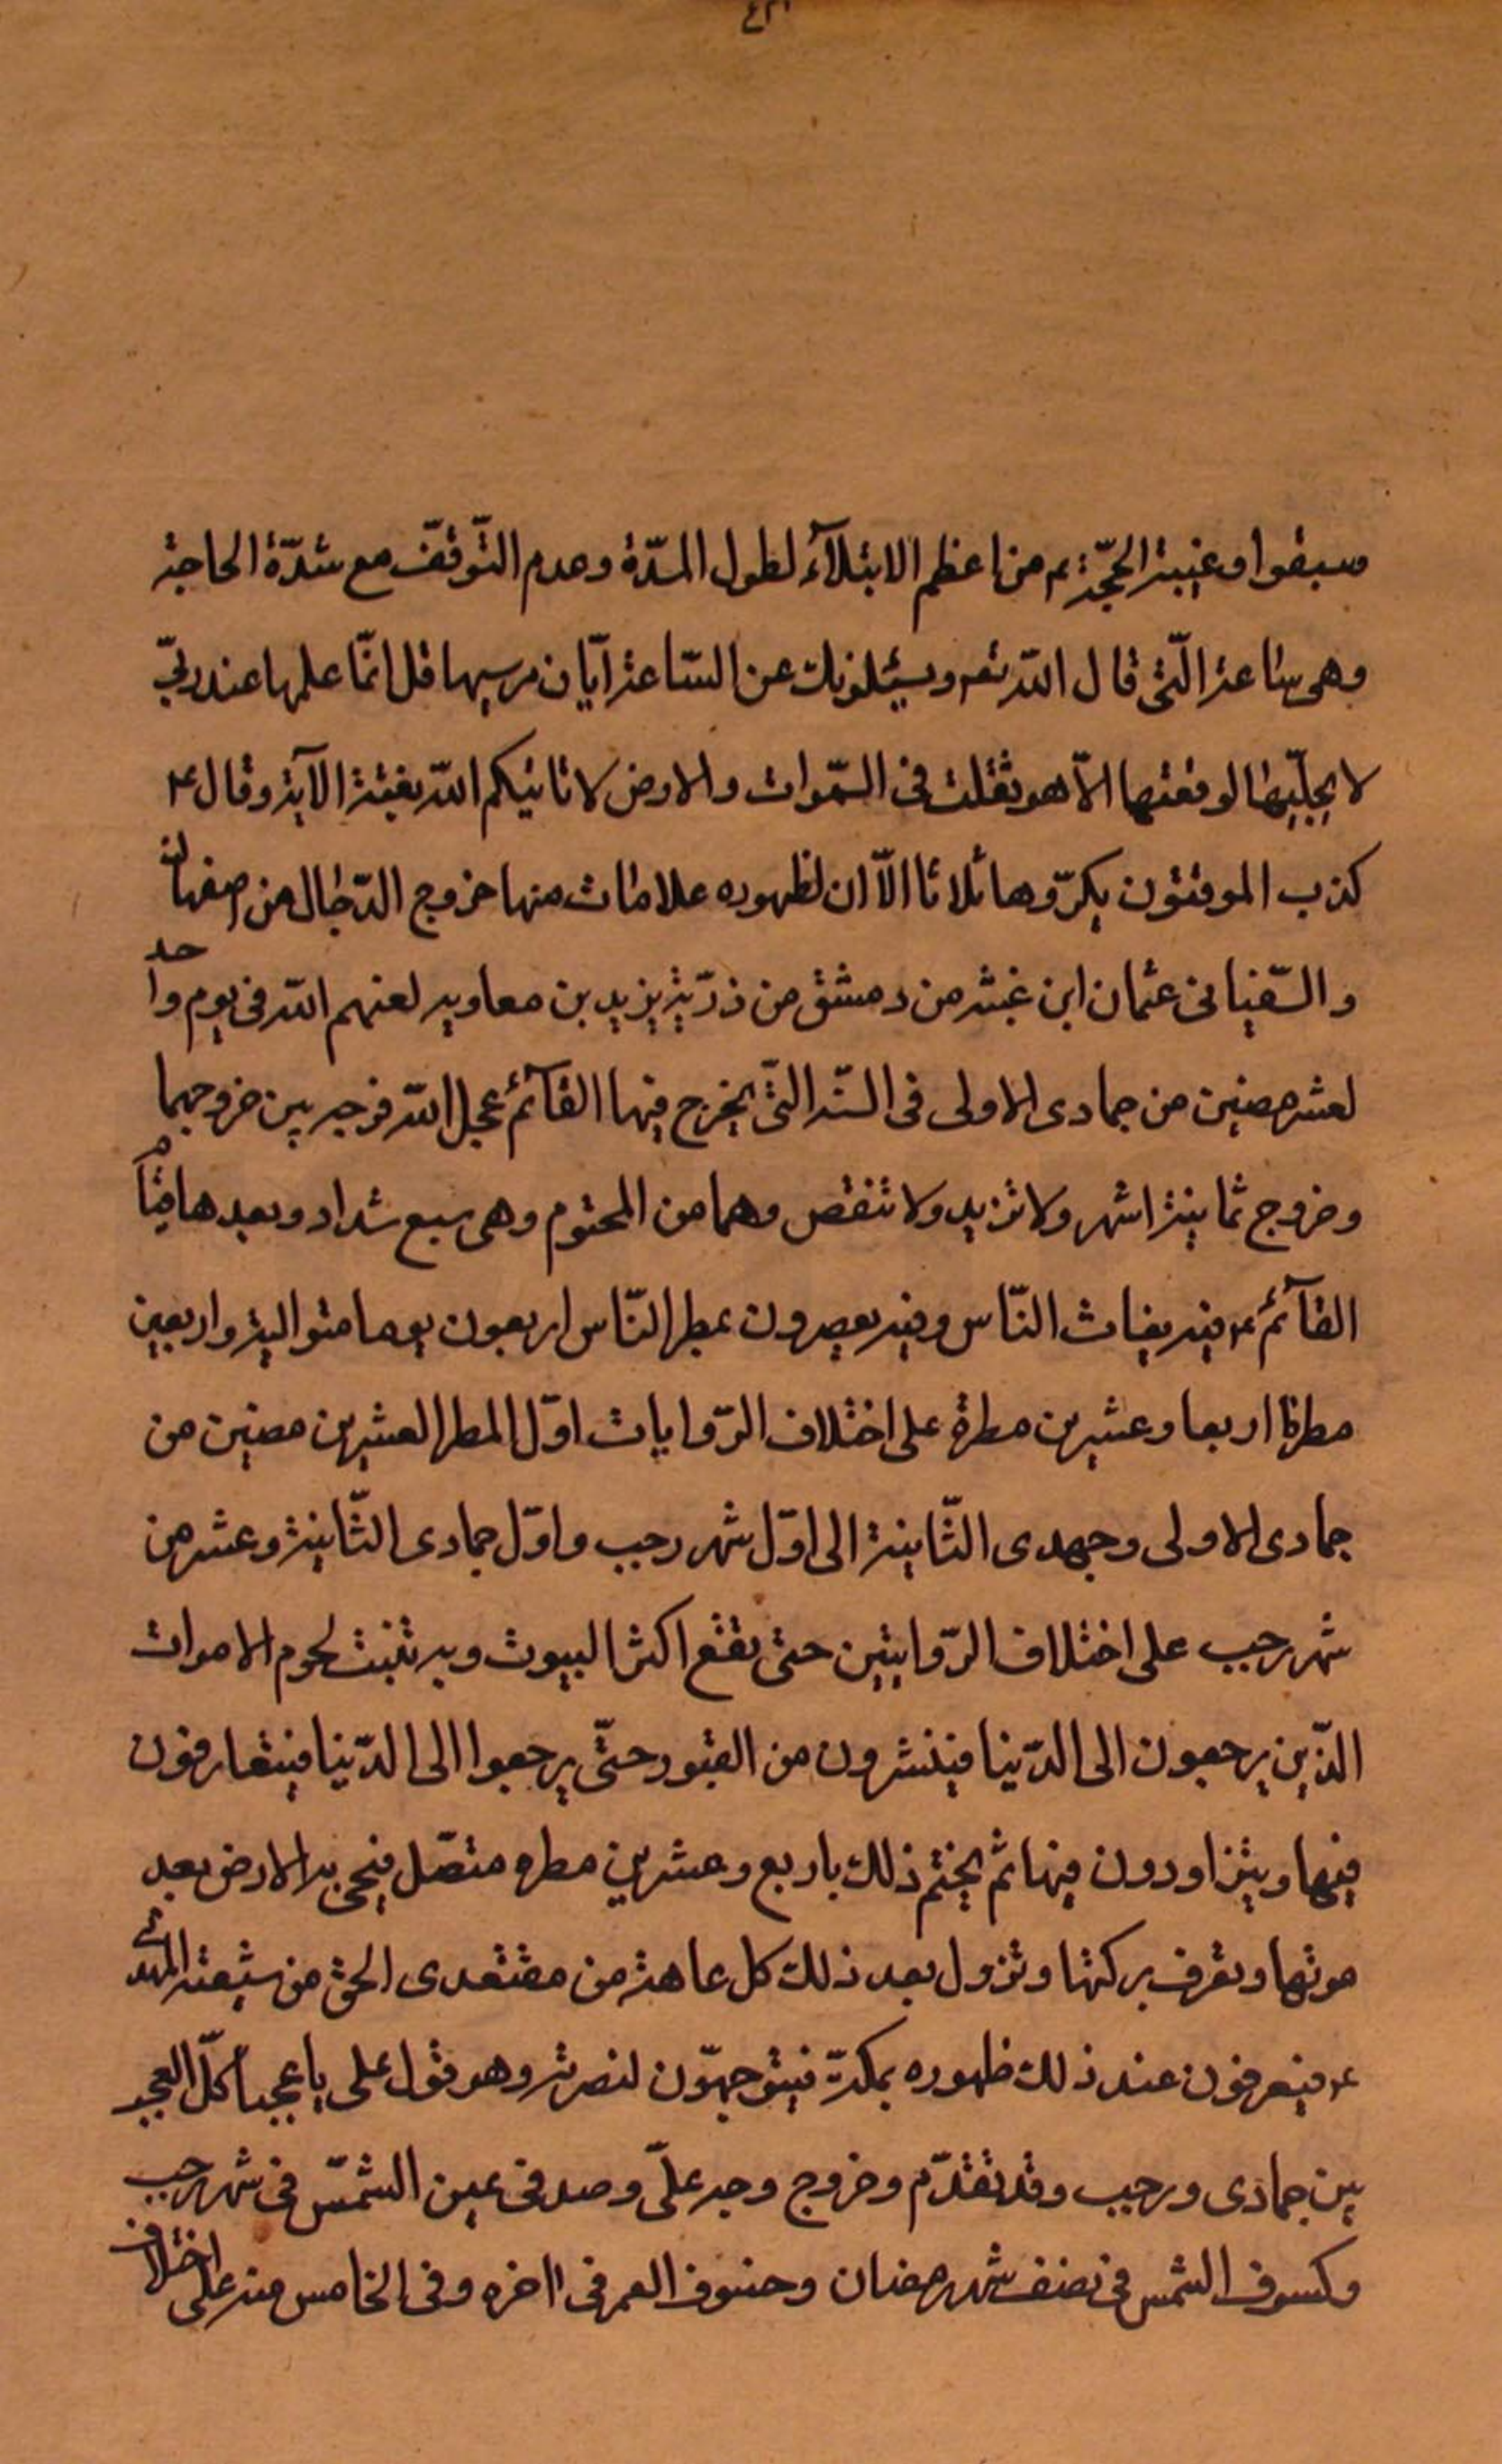 سبقوا و غيبة الحجّة ع م من اعظم الابتلآء لطول المدّة وعدم التّوقّف مع شدّة الحاجة
وهى ساعة الّتى قال اللّه تعـ ويسئلونك عن السّاعة ايّان مرسيها قل انّما علمها عند ربّى
لا يجلّيها لوقتها الاّ هو ثقلت فى السّموات والارض لا تاتيكم اللّه بغتة الآية وقال ع
كذب الموقتون يكرّرها ثلاثا الاّ ان لظهوره علامات منها خروج الدّجال من اصفهان
والسّفيانى عثمان ابن عنبثه من دمشق من ذرّيّة يزيد بن معاويه لعنهم اللّه فى يوم واحد
لعشر مضين من جمادى الاولى فى السّنة الّتى يخرج فيها القآئم عجل اللّه فرجه بين خروجهما
وخروج ثمانية اشهر ولا تزيد ولا تنقص وهما من المحتوم وهى سبع شداد وبعدها قيام
القآئم ع فيه يغاث النّاس وفيه يعصرون يمطر النّاس اربعون يوما متوالية واربعين
مطرة اربعا وعشرين مطرة على اختلاف الرّوايات اوّل المطر العشرين مضين من
جمادى الاولى وجهدى الثّانية الى اوّل شهر رجب واوّل جمادى الثّانية وعشر من
شهر رجب على اختلاف الرّوايتين حتى تقع اكثر البيوت وبه تنبت لحوم الاموات
الذّين يرجعون الى الدّنيا فينشرون من القبور حتّى يرجعوا الى الدّنيا فيتعارفون
فيها ويتزاورون فيها ثم يختم ذلك باربع وعشرين مطره متصّل فيحى به الارض بعد
موتها وتعرف بركتها وتزول بعد ذلك كل عاهة من مقتعدى الحق من شيعة المهدى
ع فيعرفون عند ذلك ظهوره بمكة فيتوجهّون لنصرته وهو قول على يا عجبا كلّ العجب
بين جمادى ورجب وقد تقدّم وخروج وجه علىّ وصد فى عين الشمّس فى شهر رجب
وكسوف الشمس فى نصف شهر رمضان وخسوف القمر فى اخره وفى الخامس منه على اختلاف